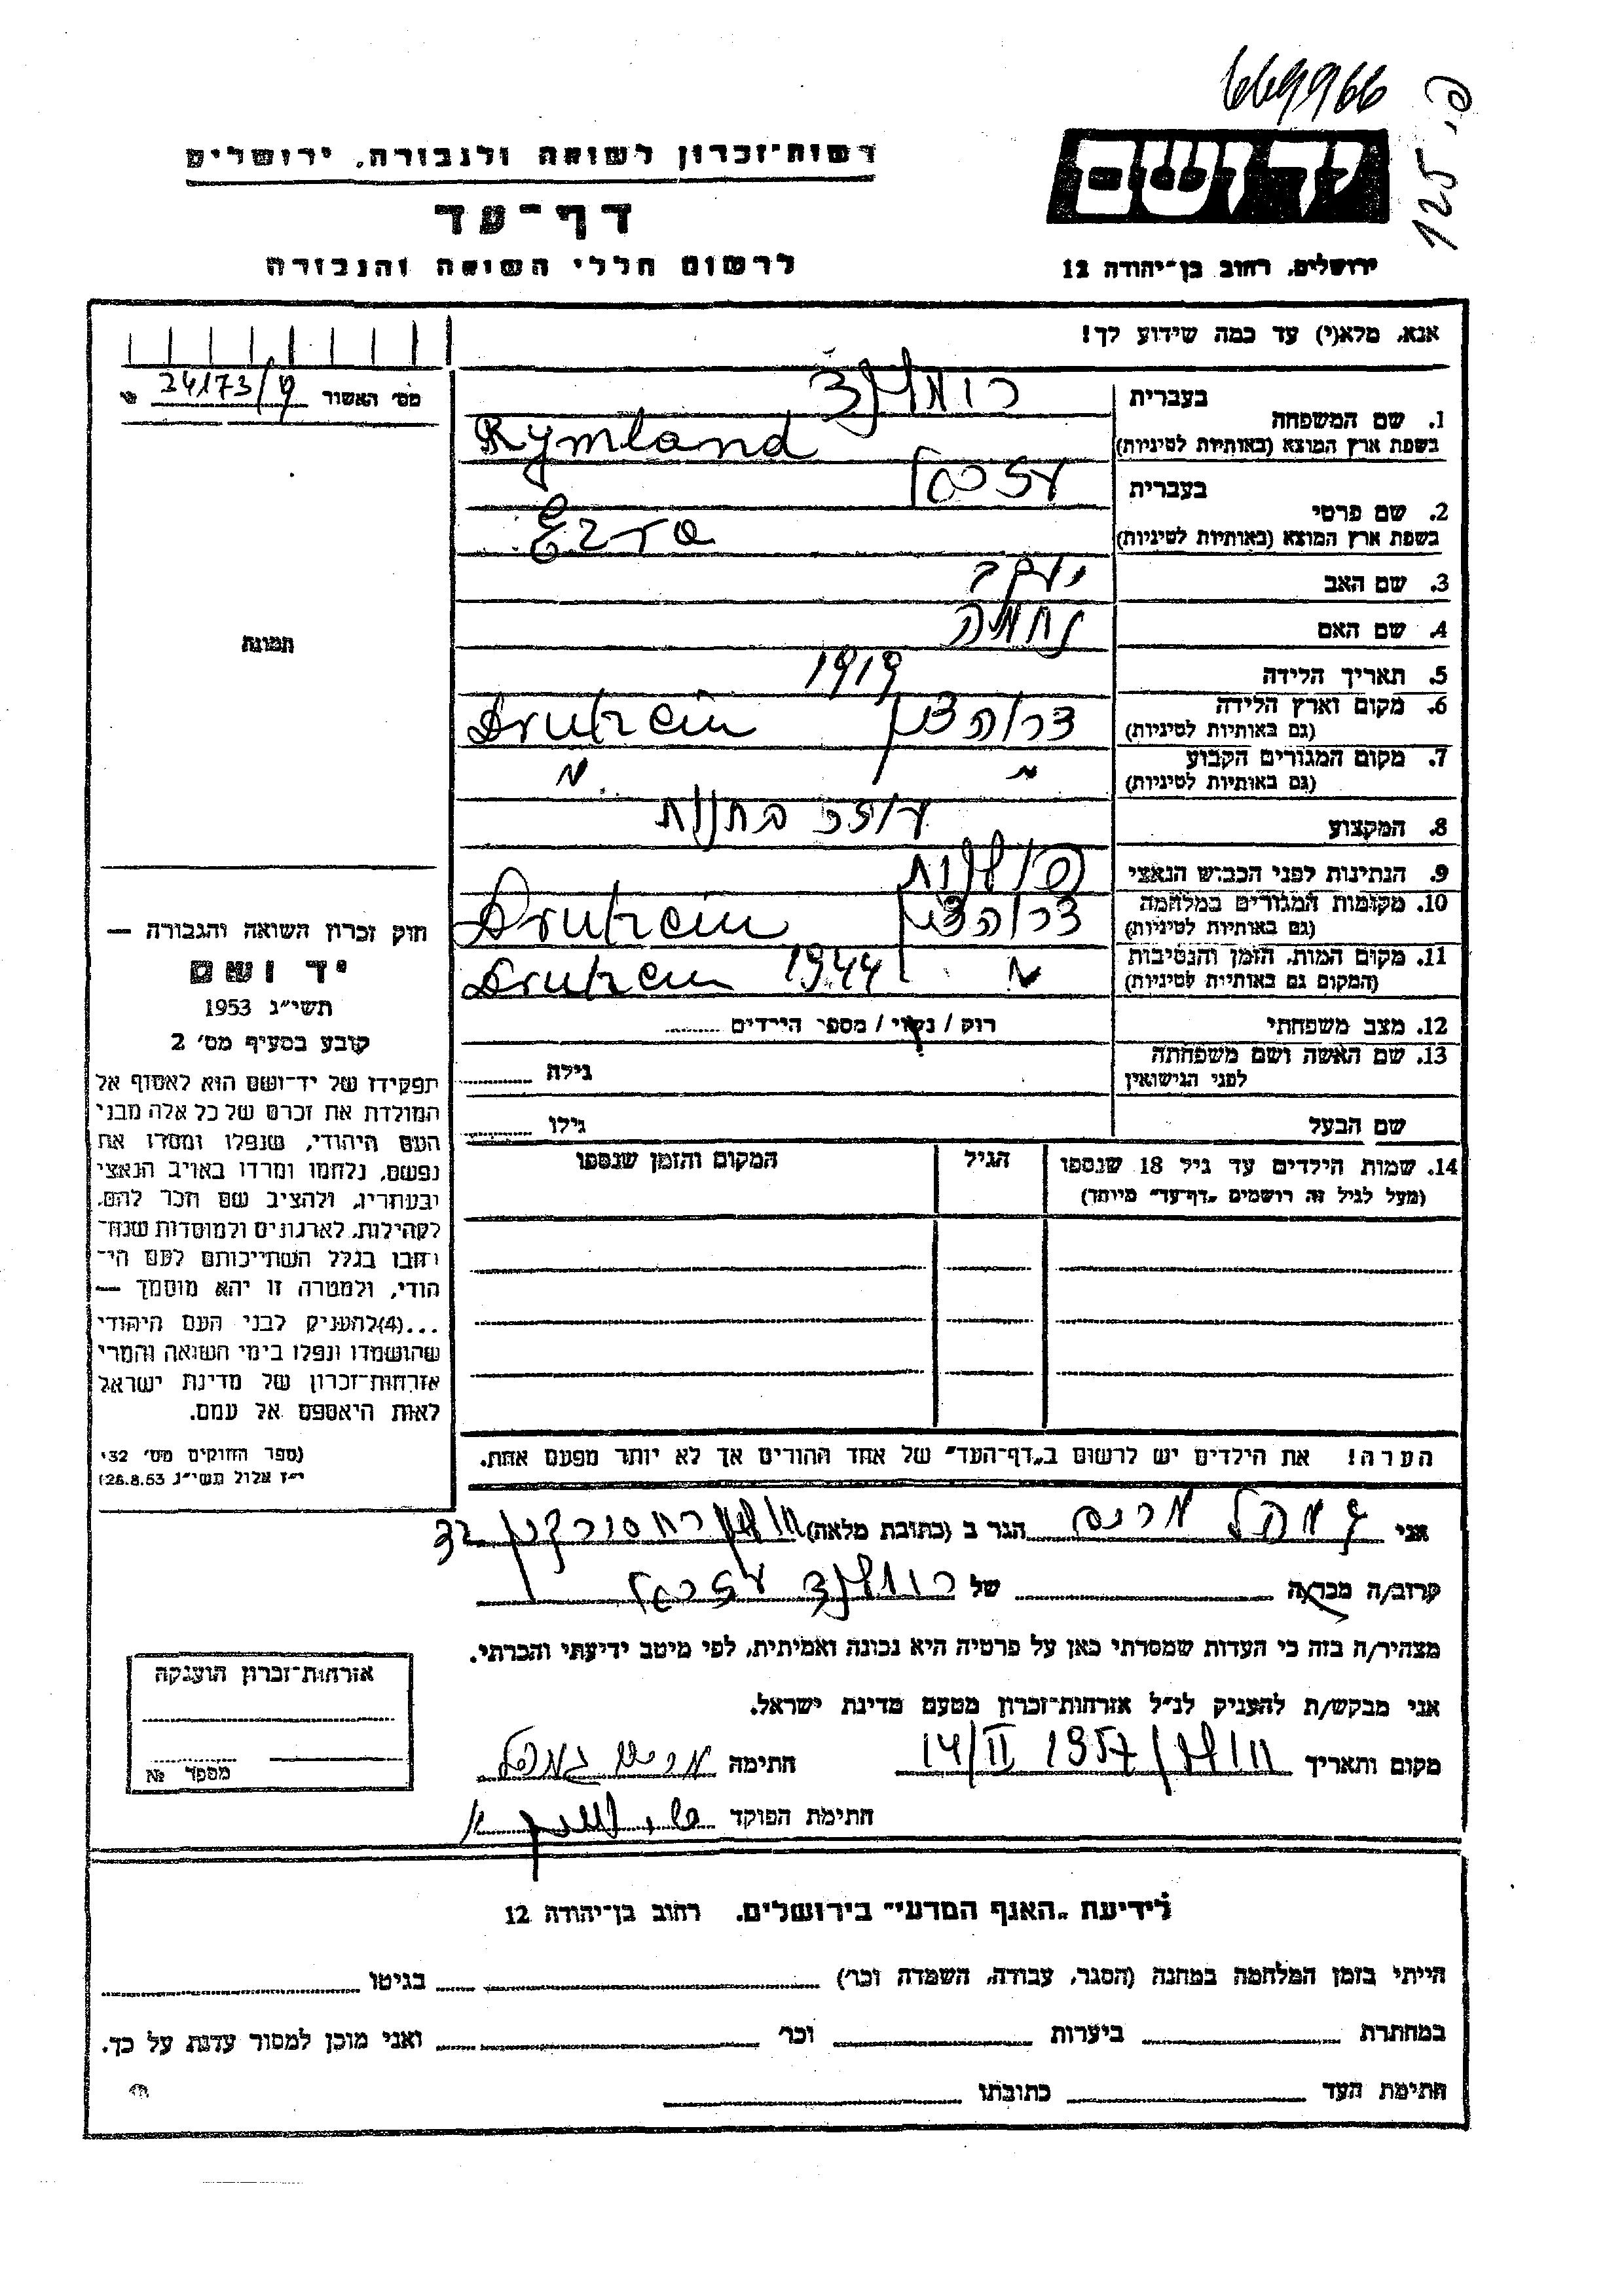 669966
125 פ.
יד ושם
רשות־זכרון לשואה ולגבורה, ירושלים
דף־עד
לרשום חללי השואה והגבורה
ירושלים, רחוב בן־יהודה 12
אנא, מלא(י) עד כמה שידוע לך!
מס׳ האשור 24173/
1. שם המשפחה בעברית
בשפת ארץ המוצא (באותיות לטיניות) Rymland
2. שם פרטי בעברית
בשפת ארץ המוצא (באותיות לטיניות) Ezra
3. שם האב יעקב
4. שם האם נחמה
5. תאריך הלידה 1919
6. מקום וארץ הלידה
(גם באותיות לטיניות)
7. מקום המגורים הקבוע
(גם באותיות לטיניות)
8. המקצוע עוזר בחנות
9. הנתינות לפני הכבוש הנאצי פולנית
10. מקומות המגורים במלחמה
(גם באותיות לטיניות)
11. מקום המות, הזמן והנסיבות 1944
(המקום גם באותיות לטיניות)
12. מצב משפחתי רוק / נשוי / מספר הילדים
13. שם האשה ושם משפחתה גילה
לפני הנישואין
שם הבעל גילו
14. שמות הילדים עד גיל 18 שנספו הגיל המקום והזמן שנספו
(מעל לגיל זה רושמים „דף־עד״ מיוחד)
הערה! את הילדים יש לרשום ב„דף־העד״ של אחד ההורים אך לא יותר מפעם אחת.
תמונה
חוק זכרון השואה והגבורה —
יד ושם
תשי״ג 1953
קובע בסעיף מס׳ 2
תפקידו של יד־ושם הוא לאסוף אל
המולדת את זכרם של כל אלה מבני
העם היהודי, שנפלו ומסרו את
נפשם, נלחמו ומרדו באויב הנאצי
ובעוזריו, ולהציב שם וזכר להם,
לקהילות, לארגונים ולמוסדות שנח־
רבו בגלל השתייכותם לעם הי־
הודי, ולמטרה זו יהא מוסמך —
...(4)להעניק לבני העם היהודי
שהושמדו ונפלו בימי השואה והמרי
אזרחות־זכרון של מדינת ישראל
לאות היאספם אל עמם.
(ספר החוקים מס׳ 132
י״ז אלול תשי״ג 28.8.53)
אני מרים הגר ב (כתובת מלאה) 32
קרוב/ה מכר/ה של
מצהיר/ה בזה כי העדות שמסרתי כאן על פרטיה היא נכונה ואמיתית, לפי מיטב ידיעתי והכרתי.
אני מבקש/ת להעניק לנ״ל אזרחות־זכרון מטעם מדינת ישראל.
מקום ותאריך חולון 14/II 1957 חתימה
חתימת הפוקד
אזרחות־זכרון הוענקה
מספר №
לידיעת „האגף המדעי״ בירושלים, רחוב בן־יהודה 12
הייתי בזמן המלחמה במחנה (הסגר, עבודה, השמדה וכו׳) בגיטו
במחתרת ביערות וכו׳ ואני מוכן למסור עדות על כך.
חתימת העד כתובתו